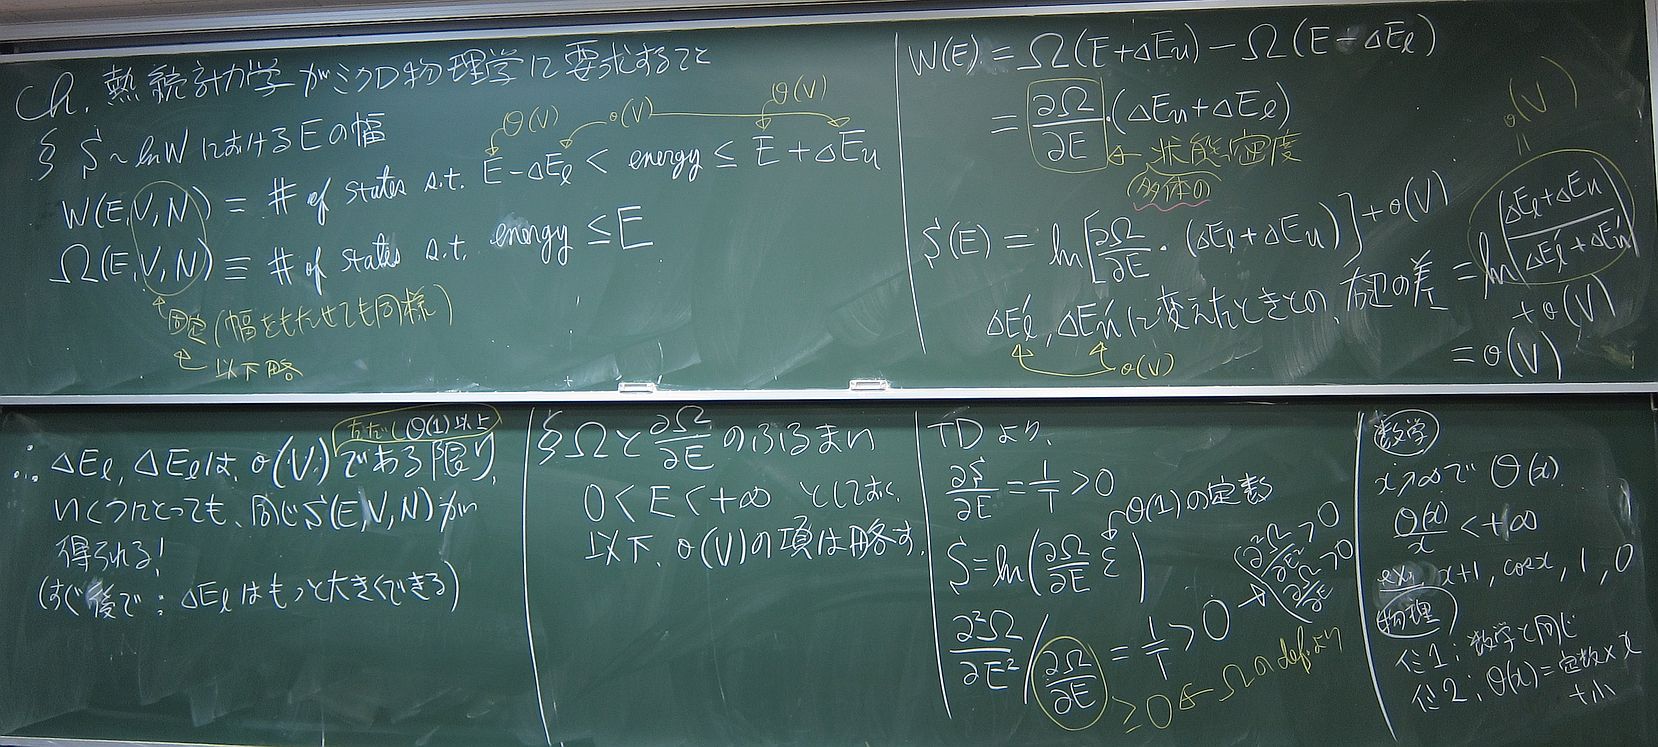 Ch. 熱統計力学がミクロ物理学に要求すること
§ S~lnWにおけるEの幅
W(E,V,N) ≡ # of states s.t. E-ΔEℓ < energy ≤ E+ΔEu
Θ(V) o(V) Θ(V)
Ω(E,V,N) ≡ # of states s.t. energy ≤E
固定(幅をもたせても同様)
以下略
W(E) = Ω(E+ΔEu) - Ω(E-ΔEℓ)
= ∂Ω/∂E・(ΔEu+ΔEℓ)
状態密度
(多体の)
S(E) = ln[∂Ω/∂E・(ΔEℓ+ΔEu)]+o(V)
ΔE'ℓ, ΔE'uに変えたときとの、右辺の差 = ln(ΔEℓ+ΔEu/ΔE'ℓ+ΔE'u)
o(V)
=
+o(V)
= o(V)
o(V)
ただしΘ(1)以上
∴ ΔEℓ, ΔEℓは、o(V)である限り、
いくつにとっても、同じS(E,V,N)が
得られる!
(すぐ後で: ΔEℓはもっと大きくできる)
§Ωと∂Ω/∂Eのふるまい
0<E<+∞ としておく、
以下、o(V)の項は略す。
TDより、
∂S/∂E=1/T>0
Θ(1)の定数
S=ln(∂Ω/∂E ε)
∂²Ω/∂E²/∂Ω/∂E = 1/T>0 → (∂²Ω/∂E²>0
∂Ω/∂E>0
≥0 ← Ωのdef.より
数学
x→∞で Θ(x)
Θ(x)/x <+∞
ex. x+1, cosx, 1, 0
物理
イ1: 数学と同じ
イ2: Θ(x)=定数×x
+小